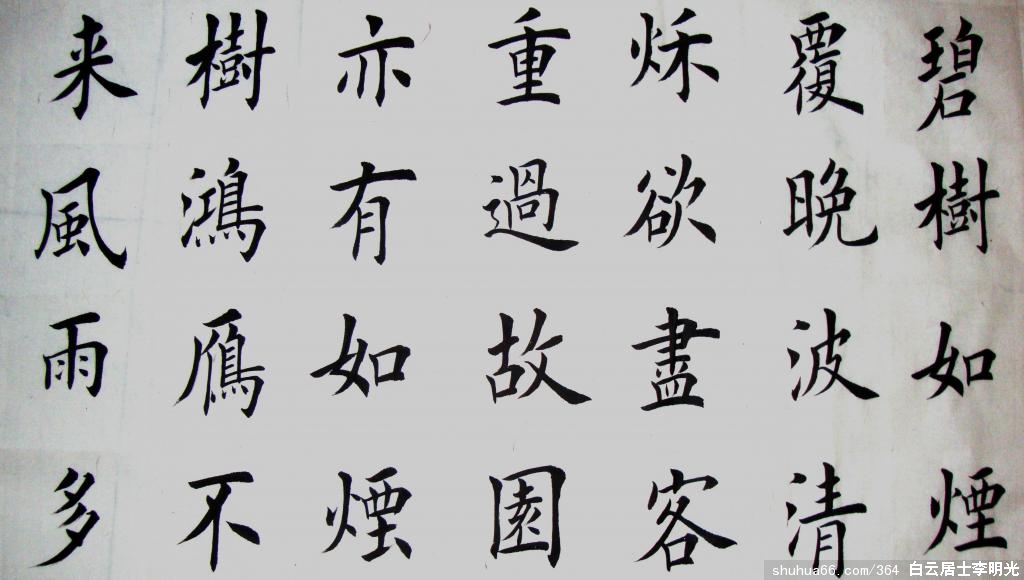 碧樹如煙
覆晚波清
秌欲盡客
重過故園
亦有如煙
樹鴻鴈不
来風雨多
shuhua66.com/364 白云居士李明光